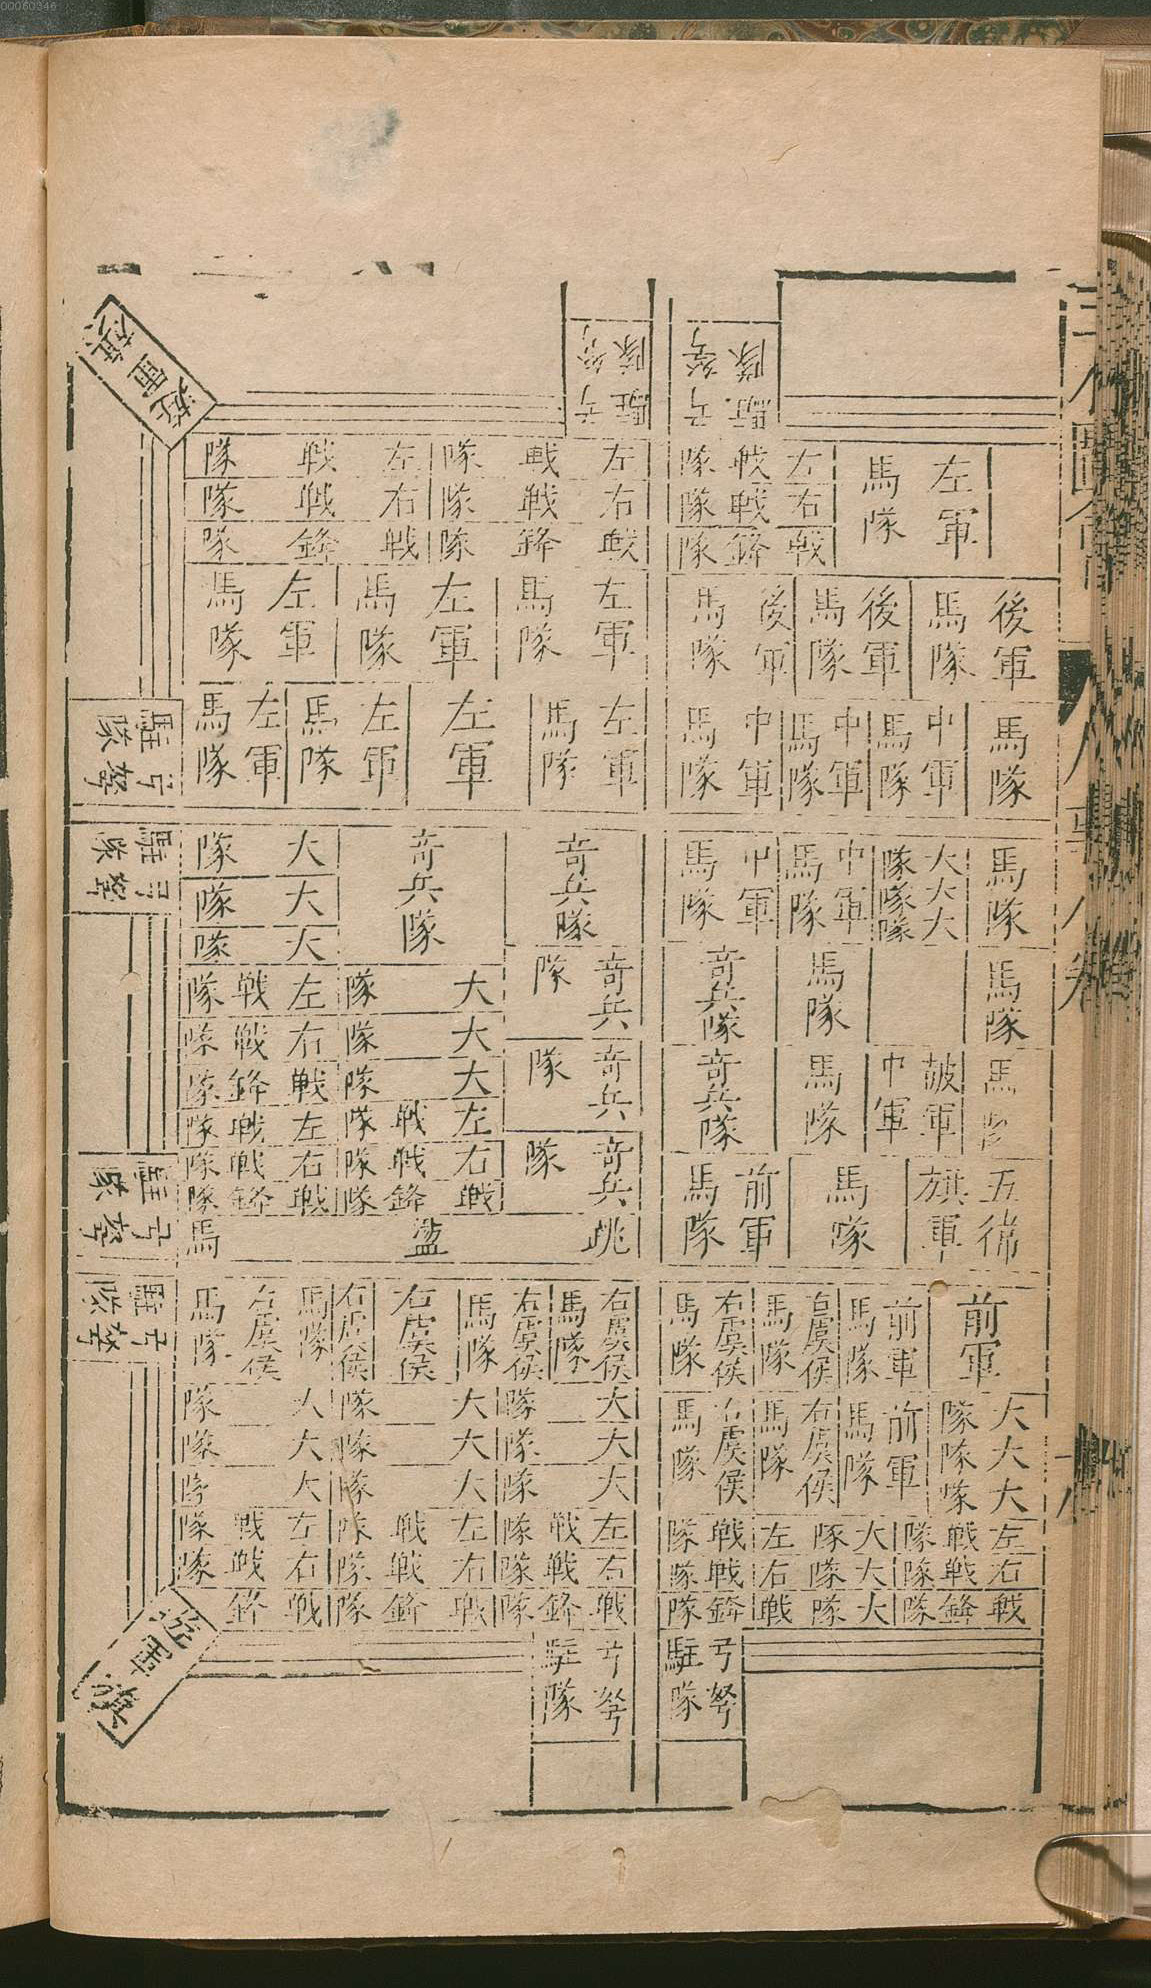 00060346
三才圖會
人事八卷
十八
弓弩
駐隊
弓弩
駐隊
左軍
馬隊
左戰隊
右戰隊
戰鋒隊
左戰隊
右戰隊
戰鋒隊
左戰隊
右戰隊
戰鋒隊
遊軍旗
後軍
馬隊
後軍
馬隊
後軍
馬隊
左軍
馬隊
左軍
馬隊
左軍
馬隊
馬隊
中軍
馬隊
中軍
馬隊
中軍
馬隊
左軍
馬隊
左軍
左軍
馬隊
左軍
馬隊
弓弩
駐隊
馬隊
大隊
大隊
大隊
中軍
馬隊
中軍
馬隊
奇兵隊
奇兵隊
大隊
大隊
大隊
弓弩
駐隊
馬隊
馬隊
奇兵隊
奇兵隊
大隊
大隊
大隊
左戰隊
右戰隊
戰鋒隊
中軍
馬隊
奇兵隊
奇兵隊
左戰隊
右戰隊
戰鋒隊
左戰隊
右戰隊
戰鋒隊
五
旗軍
馬隊
前軍
馬隊
奇兵隊
跳盪馬
弓弩
駐隊
前軍
前軍
馬隊
右虞侯
馬隊
右虞侯
馬隊
右虞侯
馬隊
右虞侯
馬隊
右虞侯
右虞侯
馬隊
右虞侯
馬隊
弓弩
駐隊
大隊
大隊
大隊
前軍
馬隊
右虞侯
馬隊
右虞侯
馬隊
大隊
大隊
大隊
大隊
大隊
大隊
大隊
大隊
大隊
左戰隊
右戰隊
戰鋒隊
大隊
大隊
大隊
左戰隊
右戰隊
戰鋒隊
左戰隊
右戰隊
戰鋒隊
左戰隊
右戰隊
戰鋒隊
左戰隊
右戰隊
戰鋒
弓弩
駐隊
弓弩
駐隊
遊軍旗